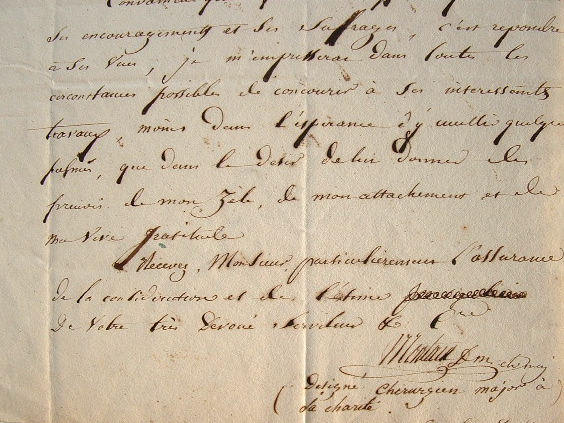 convaincu que
ses encouragements et ses suffrages, c'est repondre
à ses vues, je m'empresserai dans toutes les
circonstances possibles de concourir à ses interessants
travaux, moins dans l'espérance d'y cueillir quelque
palmes, que dans le desir de lui donner des
preuves de mon zèle, de mon attachement et de
ma vive gratitude
Recevez, Monsieur, particulièrement l'assurance
de la consideration et de l'estime
de votre très dévoué serviteur &
D. m. chirurg
(designé chirurgien major à
la charité)